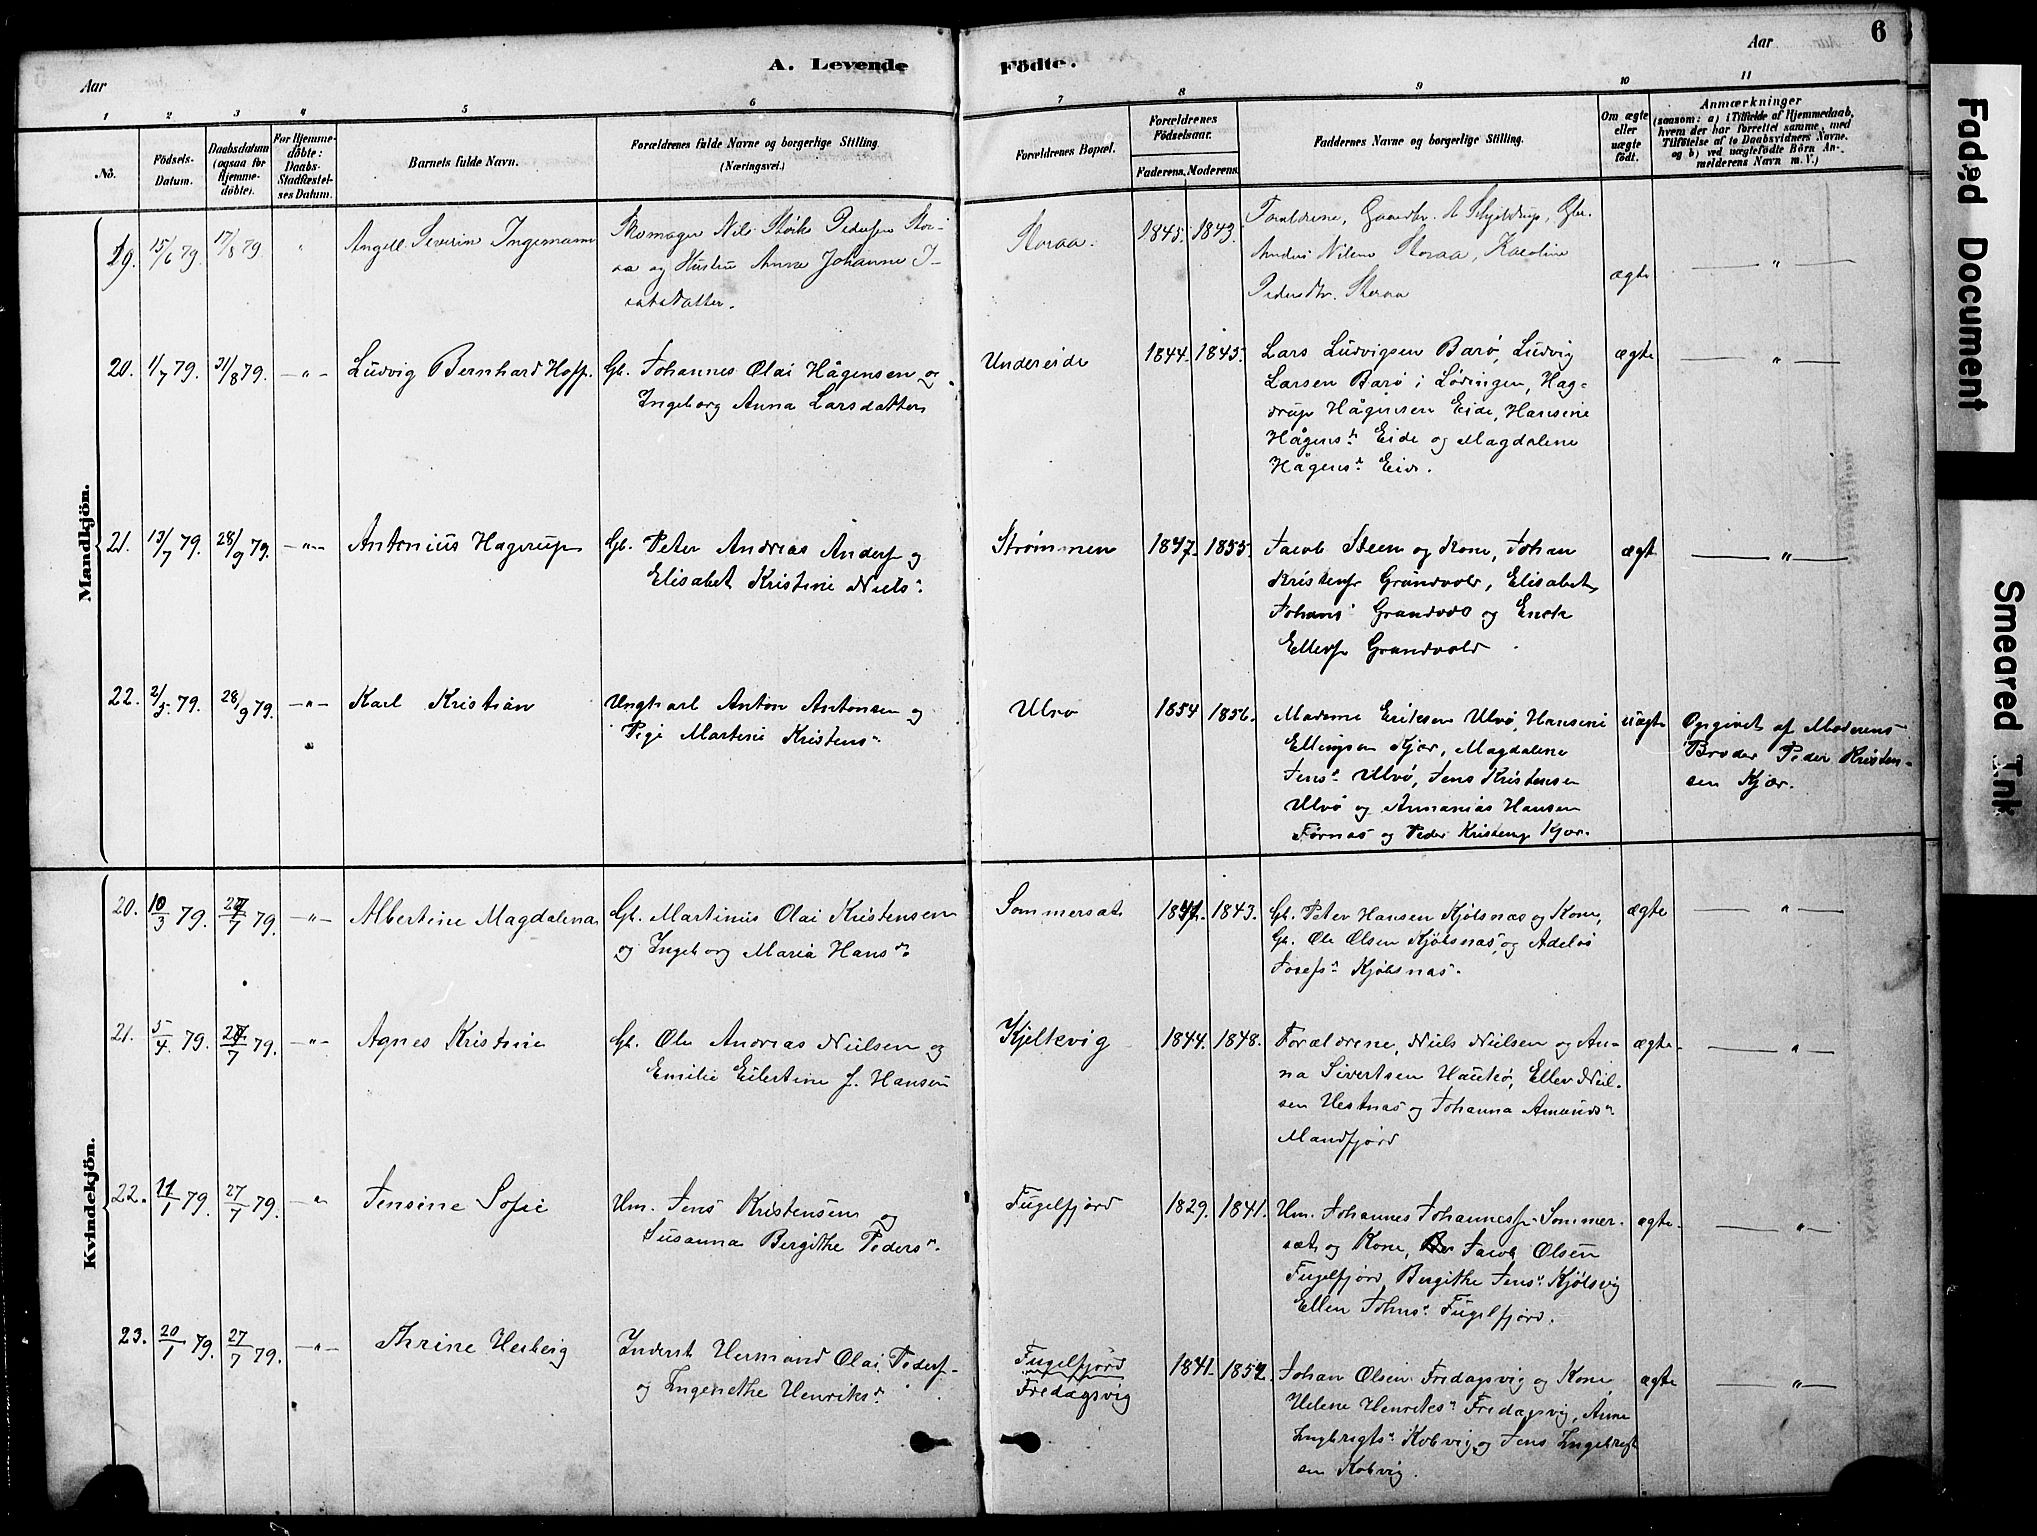 6
Aar
A. Levende
Födte.
Aar
1 2 3 4 5 6 7 8 9 10 11
No.
Födsels-
Datum.
Daabsdatum
(ogsaa for
Hjemme-
döbte).
For Hjemme-
döbte:
Daabs-
Stadfæstel-
ses Datum.
Barnets fulde Navn.
Forældrenes fulde Navne og borgerlige Stilling.
(Næringsvei.)
Forældrenes Bopæl.
Forældrenes
Födselsaar.
Faderens. Moderens.
Faddernes Navne og borgerlige Stilling.
Om ægte
eller
uægte
födt.
Anmærkninger
(saasom: a) i Tilfælde af Hjemmedaab,
hvem der har forrettet samme, med
Tilföielse af to Daabsvidners Navne.
og b) ved uægtefödte Börn An-
melderens Navn m. V.)
Mandkjön.
19. 15/6 79. 17/8 79. " Angell Severin Ingemann
Skomager Nils Störk Pedersen Stor-
aa og Hustru Anna Johanne I-
saksdatter.
Storaa. 1845. 1849.
Forældrene, Gaardbr. A Schjeldrup, Gbr.
Anders Nilsen Storaa, Karoline
Pedersdtr. Storaa
ægte "
20. 1/7 79. 31/8 79. " Ludvig Bernhard Hoff.
Gb. Johannes Olai Hågensen og
Ingeborg Anna Larsdatter
Undereide 1844. 1845.
Lars Ludvigsen Barø, Ludvig
Larsen Barø i Lødingen, Hag-
drup Hågensen Eide, Hansine
Hågens: Eide og Magdalene
Hågens: Eide.
ægte "
21. 13/7 79. 28/9 79. " Antonius Hagerup
Gb. Peter Andreas Anders og
Elisabet Kristine Niels:
Strømmen 1847. 1855.
Jacob Steen og Kone, Johan
Kristens Grundvold, Elisabet
Johans: Grandvold og
Ellevs Grandvold
ægte "
22. 2/5 79. 28/9 79. " Karl Kristian
Ungkarl Anton Antonsen og
Pige Martine Kristens:
Ulvø 1854 1856.
Madame Eriksen Ulvø, Hansine
Ellingsen Kjær, Magdalene
Jens: Ulvø, Jens Kristensen
Ulvø og Annanias Hansen
Førnæs og Peder Kristens Kjær.
uægte
Opgivet af Moderens
Broder Peder Kristen-
sen Kjær.
Kvindekjön.
20. 10/3 79. 27/7 79. " Albertine Magdalena
Gb. Martinus Olai Kristensen
og Ingeborg Maria Hans:
Sommersæt 1843.
Gb. Peter Hansen Kjølsnæs og Kone,
Gb. Ole Olsen Kjølsnæs, og
Josefs: Kjølsnæs.
ægte "
21. 5/4 79. 27/7 79. " Agnes Kristine
Gb. Ole Andreas Nielsen og
Emilie Eilertine J. Hansen
Kjelkvig 1844. 1848.
Forældrene, Niels Nielsen og An-
na Sivertsen Haukø, Ellev Niel-
sen Vestnæs og Johanna Amunds:
Mandfjord
ægte "
22. 11/1 79. 27/7 79. " Jensine Sofie
Um. Jens Kristensen og
Susanna Bergithe Peders:
Fugelfjord 1829. 1841.
Um. Johannes Johanness: Sommer-
sæt og Kone, Jacob Olsen
Fugelfjord, Bergithe Jens: Kjølsvig
Ellen Johns: Fugelfjord.
ægte "
23. 20/1 79. 27/7 79. " Thrine Herberg
Inderst Hermand Olai Peders
og Ingerethe Henriks:
Fugelfjord
Fredagsvig
1841. 1852.
Johan Olsen Fredagsvig og Kone
Helene Henriks: Fredagsvig, Anne
Ingbrigts: Kobvig, og Jens Ingebrigt
sen Kobvig.
ægte "
Faded Document
Smeared Ink